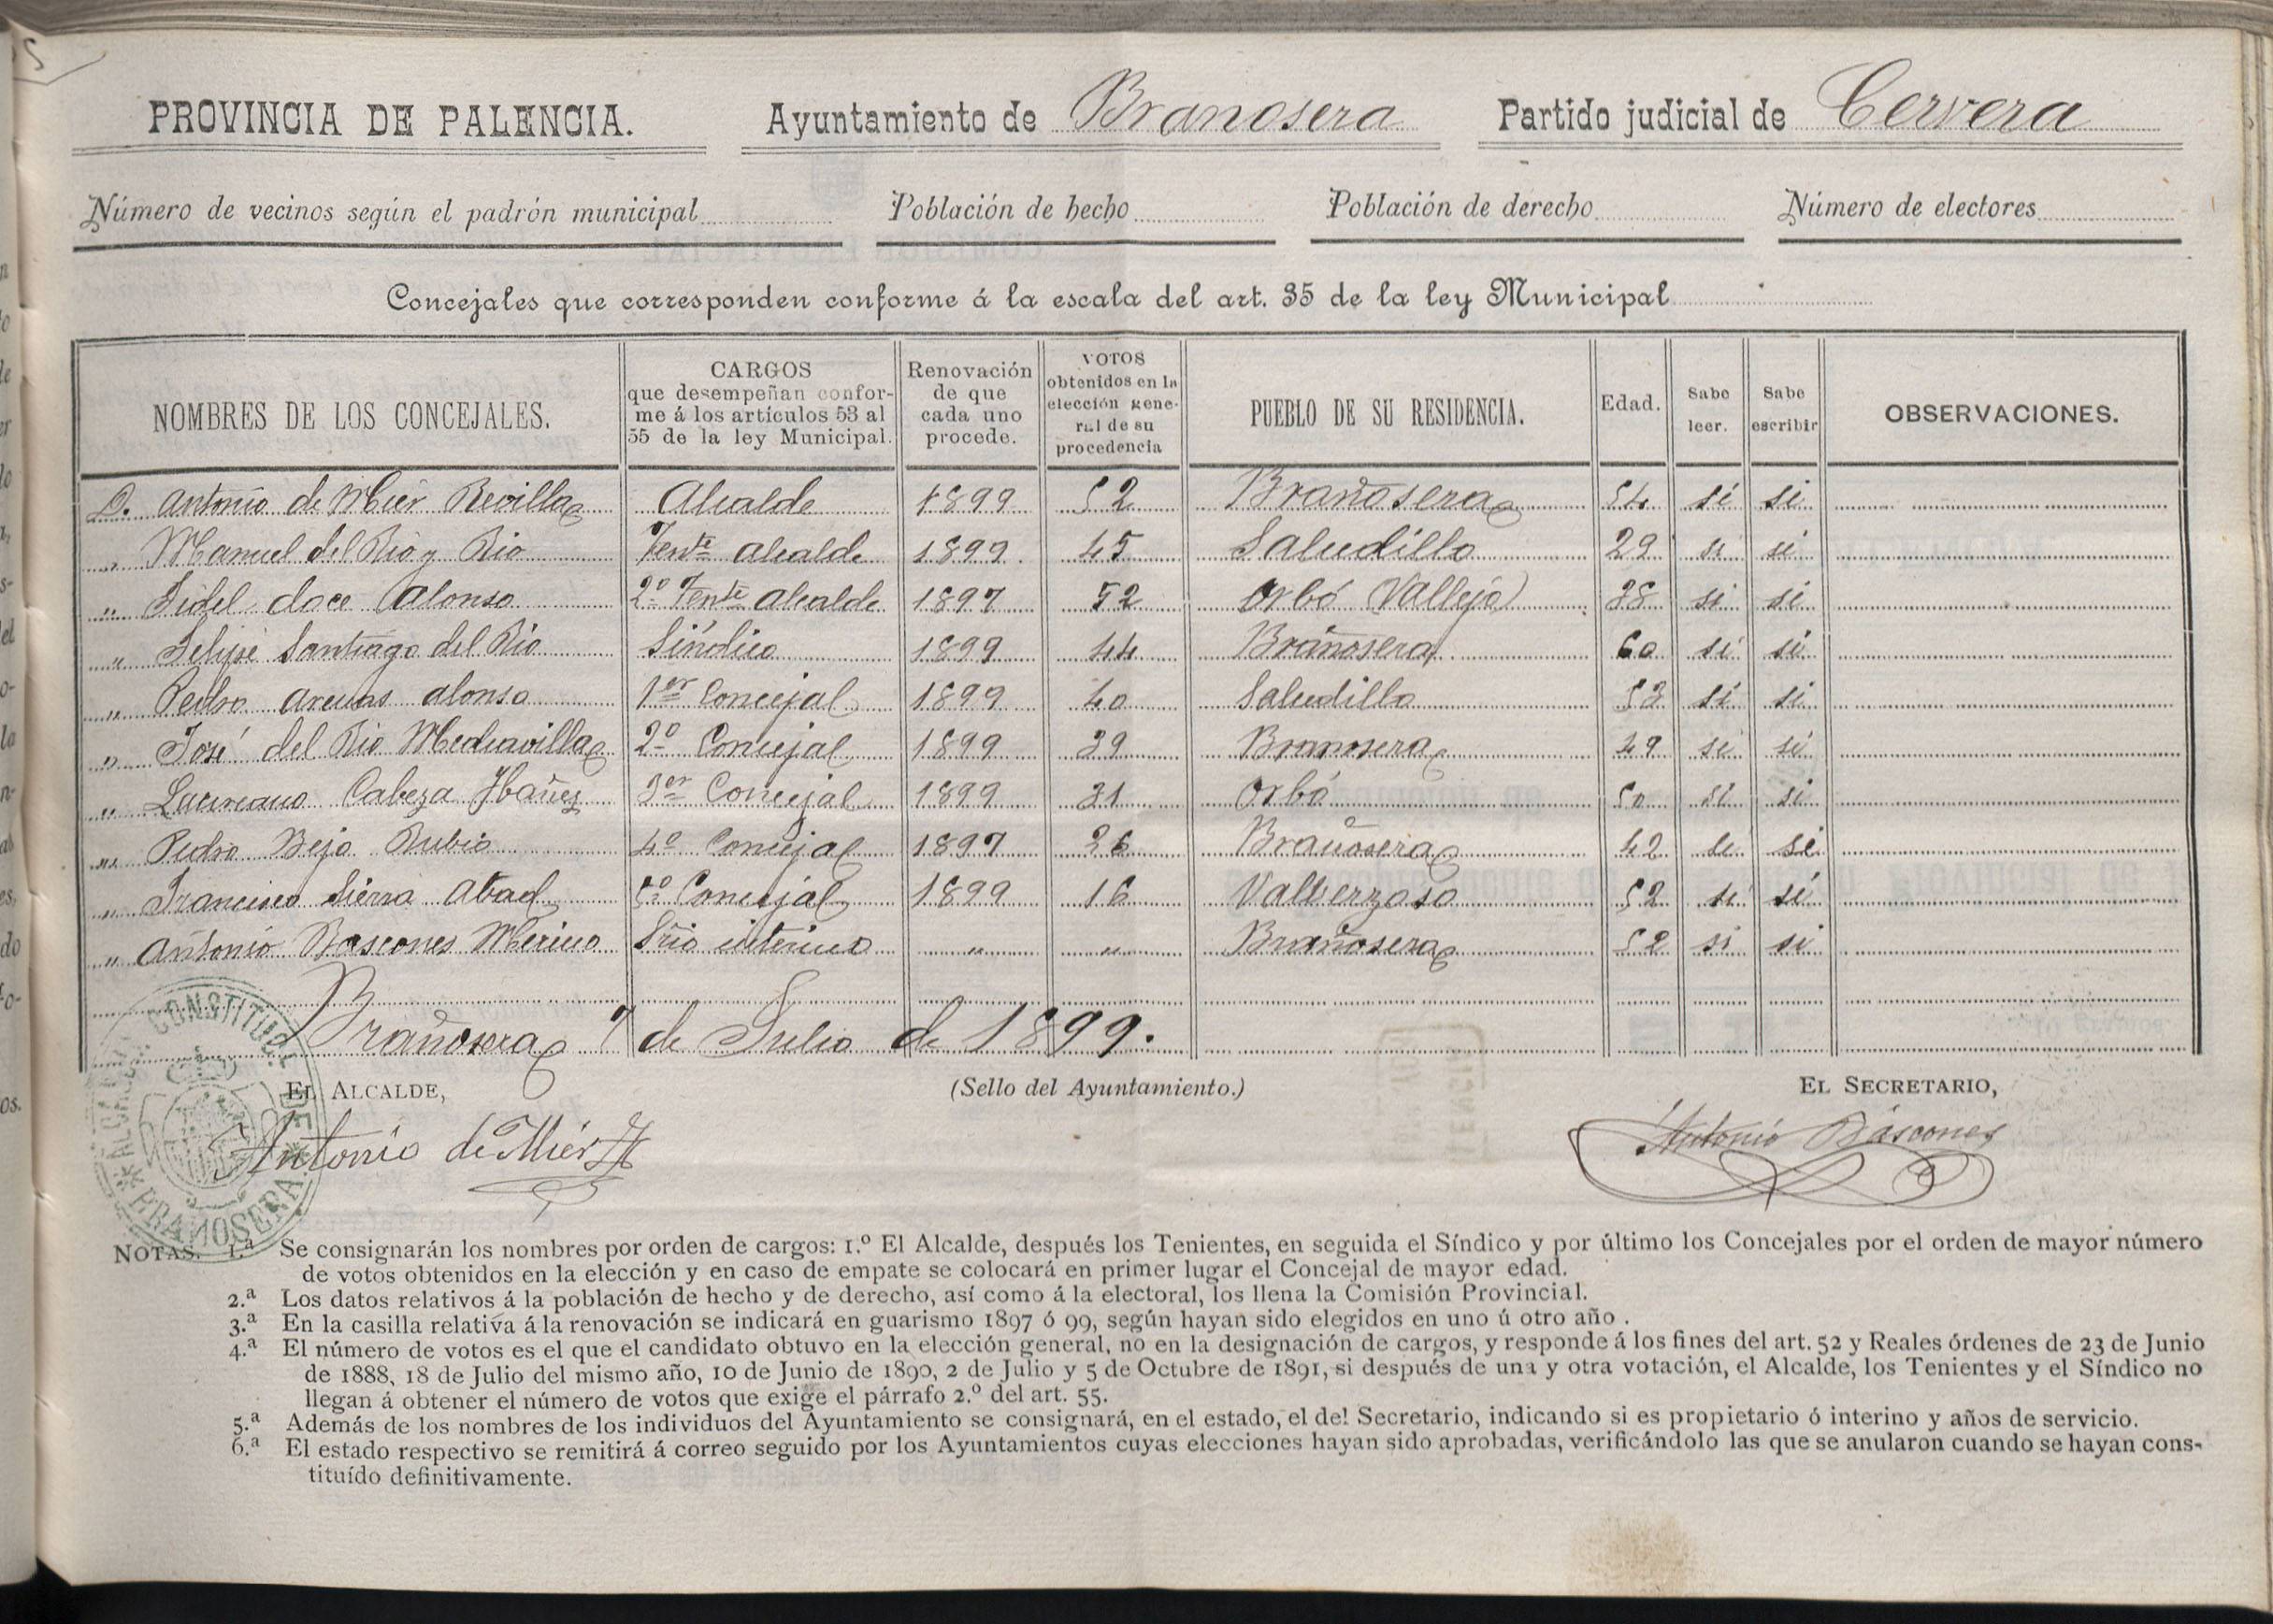 PROVINCIA DE PALENCIA. Ayuntamiento de Branosera Partido judicial de Cervera
Número de vecinos según el padrón municipal Población de hecho Población de derecho Número de electores
Concejales que corresponden conforme á la escala del art. 35 de la ley Municipal
NOMBRES DE LOS CONCEJALES.
CARGOS
que desempeñan confor-
me á los artículos 53 al
55 de la ley Municipal.
Renovación
de que
cada uno
procede.
VOTOS
obtenidos en la
elección gene-
ral de su
procedencia
PUEBLO DE SU RESIDENCIA.
Edad.
Sabe
leer.
Sabe
escribir
OBSERVACIONES.
D. Antonio de Mier Revilla Alcalde 1899 52 Brañosera 54 si si
„ Manuel del Rio y Rio Tente alcalde 1899 45 Saludillo 29 si si
„ Fidel doce Alonso 2º Tente alcalde 1897 52 Orbó Vallejo 38 si si
„ Felipe Santiago del Rio Síndico 1899 44 Brañosera 60 si si
„ Pedro Arenas alonso 1er Concejal 1899 40 Saludillo 53 si si
„ José del Rio Mediavilla 2º Concejal 1899 39 Branosera 49 si si
„ Laureano Cabeza Ibañez 3er Concejal 1899 31 Orbó 50 si si
„ Pedro Bejo Rubio 4º Concejal 1897 26 Brañosera 42 si si
„ Francisco Sierra Abad 5º Concejal 1899 16 Valberzoso 52 si si
„ Antonio Bascones Merino Srio interino „ „ Brañosera 52 si si
Brañosera 7 de Julio de 1899.
EL ALCALDE, (Sello del Ayuntamiento.) EL SECRETARIO,
Antonio de Mier Antonio Báscones
ALCALDIA CONSTITUCL DE BRAÑOSERA
NOTAS. 1.ª Se consignarán los nombres por orden de cargos: 1.º El Alcalde, después los Tenientes, en seguida el Síndico y por último los Concejales por el orden de mayor número
de votos obtenidos en la elección y en caso de empate se colocará en primer lugar el Concejal de mayor edad.
2.ª Los datos relativos á la población de hecho y de derecho, así como á la electoral, los llena la Comisión Provincial.
3.ª En la casilla relativa á la renovación se indicará en guarismo 1897 ó 99, según hayan sido elegidos en uno ú otro año.
4.ª El número de votos es el que el candidato obtuvo en la elección general, no en la designación de cargos, y responde á los fines del art. 52 y Reales órdenes de 23 de Junio
de 1888, 18 de Julio del mismo año, 10 de Junio de 1890, 2 de Julio y 5 de Octubre de 1891, si después de una y otra votación, el Alcalde, los Tenientes y el Síndico no
llegan á obtener el número de votos que exige el párrafo 2.º del art. 55.
5.ª Además de los nombres de los individuos del Ayuntamiento se consignará, en el estado, el del Secretario, indicando si es propietario ó interino y años de servicio.
6.ª El estado respectivo se remitirá á correo seguido por los Ayuntamientos cuyas elecciones hayan sido aprobadas, verificándolo las que se anularon cuando se hayan cons-
tituído definitivamente.